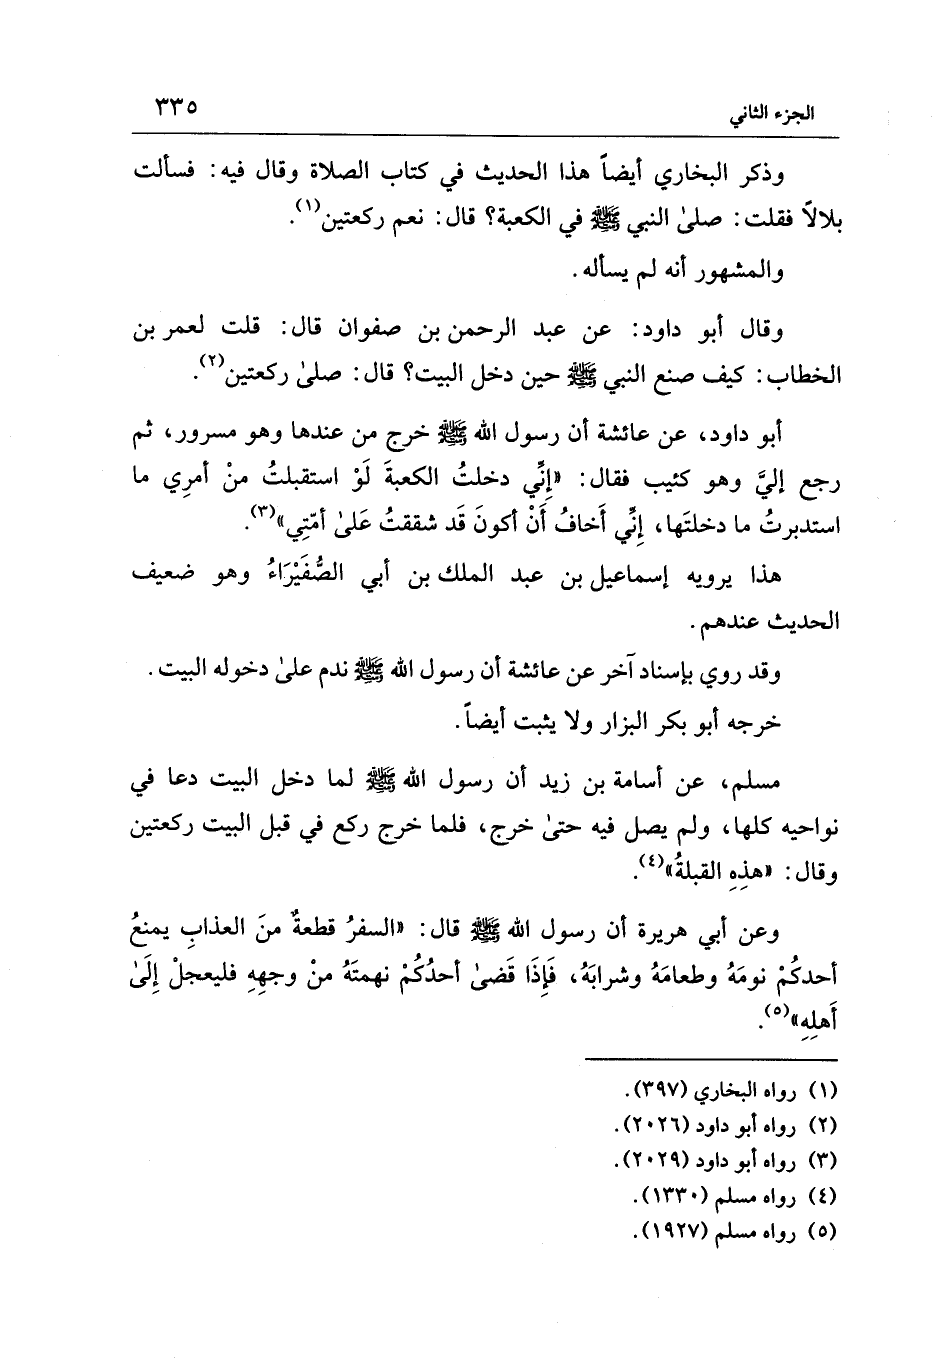 الجزء الثاني ٣٣٥
وذكر البخاري أيضاً هذا الحديث في كتاب الصلاة وقال فيه: فسألت
بلالاً فقلت: صلىٰ النبي ﷺ في الكعبة؟ قال: نعم ركعتين(١).
والمشهور أنه لم يسأله.
وقال أبو داود: عن عبد الرحمن بن صفوان قال: قلت لعمر بن
الخطاب: كيف صنع النبي ﷺ حين دخل البيت؟ قال: صلىٰ ركعتين(٢).
أبو داود، عن عائشة أن رسول الله ﷺ خرج من عندها وهو مسرور، ثم
رجع إليَّ وهو كئيب فقال: «إِنِّي دخلتُ الكعبةَ لَوْ استقبلتُ منْ أمرِي ما
استدبرتُ ما دخلتَها، إِنِّي أَخافُ أَنْ أكونَ قَد شققتُ عَلىٰ أمّتِي»(٣).
هذا يرويه إسماعيل بن عبد الملك بن أبي الصُّفَيْرَاءُ وهو ضعيف
الحديث عندهم.
وقد روي بإسناد آخر عن عائشة أن رسول الله ﷺ ندم علىٰ دخوله البيت.
خرجه أبو بكر البزار ولا يثبت أيضاً.
مسلم، عن أسامة بن زيد أن رسول الله ﷺ لما دخل البيت دعا في
نواحيه كلها، ولم يصل فيه حتىٰ خرج، فلما خرج ركع في قبل البيت ركعتين
وقال: «هذِهِ القبلةُ»(٤).
وعن أبي هريرة أن رسول الله ﷺ قال: «السفرُ قطعةٌ منَ العذابِ يمنعُ
أحدكُمْ نومَهُ وطعامَهُ وشرابَهُ، فَإِذَا قَضىٰ أحدُكُمْ نهمتَهُ منْ وجهِهِ فليعجلْ إِلَىٰ
أَهلِهِ»(٥).
(١) رواه البخاري (٣٩٧).
(٢) رواه أبو داود (٢٠٢٦).
(٣) رواه أبو داود (٢٠٢٩).
(٤) رواه مسلم (١٣٣٠).
(٥) رواه مسلم (١٩٢٧).